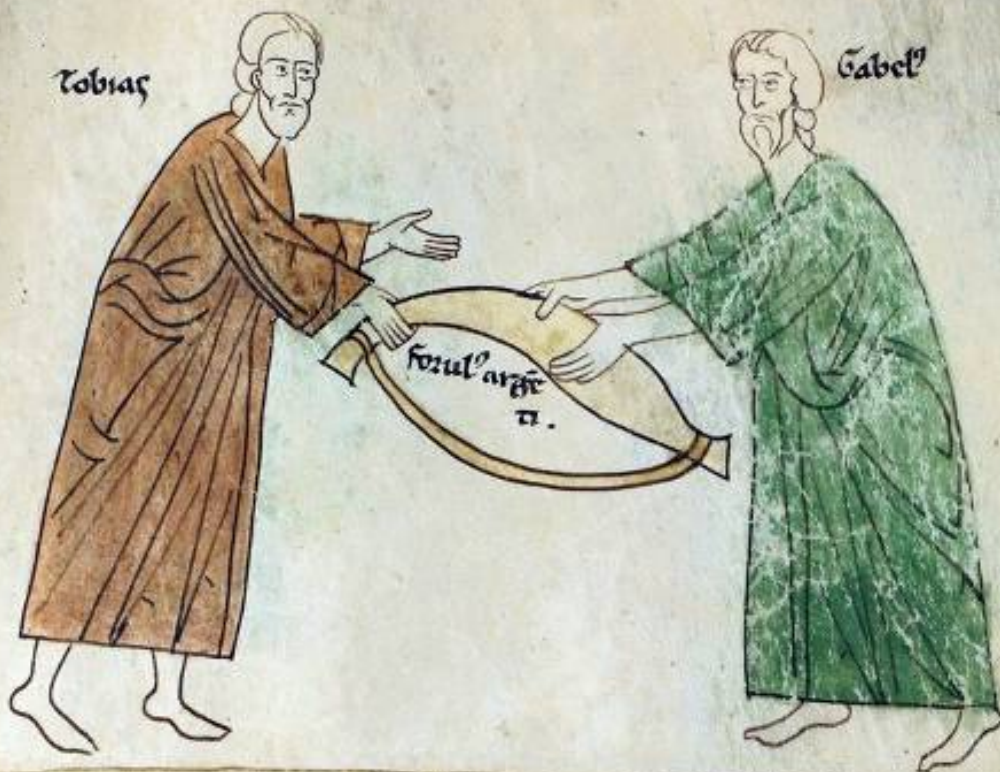 Tobias
Gabelꝰ
forulꝰ argē
ti.